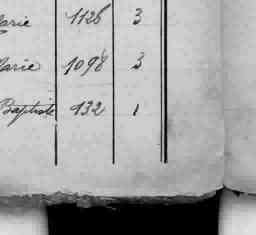 Marie 1126 3
Marie 1098 3
Baptiste 132 1